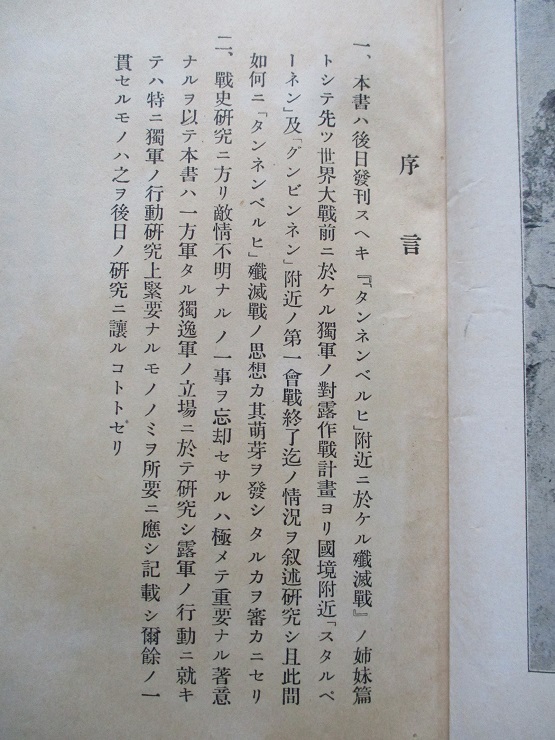 序言
一、本書ハ後日發刊スヘキ『「タンネンベルヒ」附近ニ於ケル殲滅戰』ノ姉妹篇
トシテ先ツ世界大戰前ニ於ケル獨軍ノ對露作戰計畫ヨリ國境附近「スタルペ
ーネン」及「グンビンネン」附近ノ第一會戰終了迄ノ情況ヲ叙述硏究シ且此間
如何ニ「タンネンベルヒ」殲滅戰ノ思想カ其萌芽ヲ發シタルカヲ審カニセリ
二、戰史硏究ニ方リ敵情不明ナルノ一事ヲ忘却セサルハ極メテ重要ナル著意
ナルヲ以テ本書ハ一方軍タル獨逸軍ノ立場ニ於テ硏究シ露軍ノ行動ニ就キ
テハ特ニ獨軍ノ行動硏究上緊要ナルモノノミヲ所要ニ應シ記載シ爾餘ノ一
貫セルモノハ之ヲ後日ノ硏究ニ讓ルコトトセリ